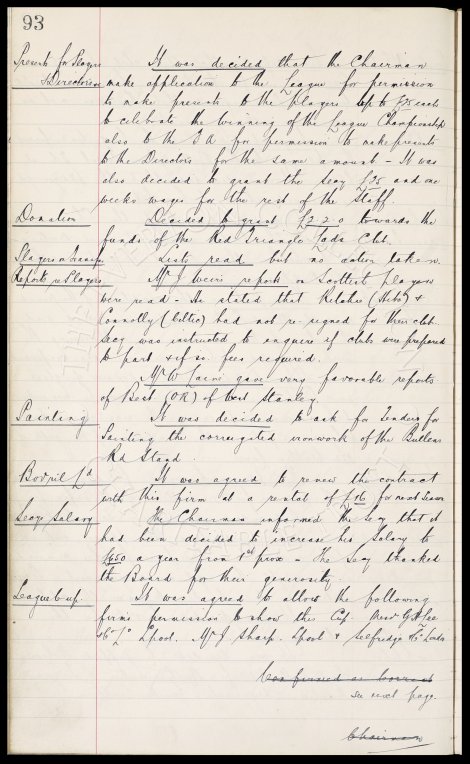 93
Presents for Players It was decided that the Chairman
& Directors make application to the League for permission
to make presents to the Players up to £75 each
to celebrate the winning of the League Championship
also to the F.A. for permission to make presents
to the Directors for the same amount - It was
also decided to grant the Secy £75 and one
weeks wages for the rest of the Staff.
Donation Decided to grant £2.2.0 towards the
funds of the Red Triangle Lads Club.
Players on Transfer Lists read but no action taken.
Reports re Players Mr J Weir's reports on Scottish players
were read - He stated that (Hibs) &
Connolly (Celtic) had not re-signed for their club.
Secy was instructed to enquire if clubs were prepared
to part & if so fees required.
Mr W gave very favorable reports
of Best (OR) of West Stanley.
Painting It was decided to ask for Tenders for
Painting the corrugated ironwork of the Bullens
Rd Stand.
Bovril Ld It was agreed to renew the contract
with this firm at a rental of for next Season
Secys Salary The Chairman informed the Secy that it
had been decided to increase his Salary to
£650 a year from 1st prox - The Secy thanked
the Board for their generosity.
League Cup It was agreed to allow the following
firms permission to show this Cup. G.H. Lee
& Co Ld Lpool. Mr J Sharp. Lpool & Selfridge & Co London
Confirmed as Correct
see next page.
Chairman